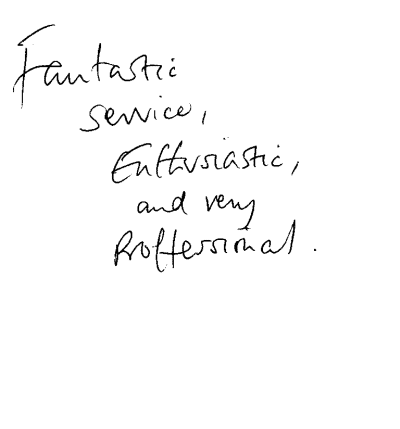 Fantastic
service,
Enthusiastic,
and very
Proffessional.